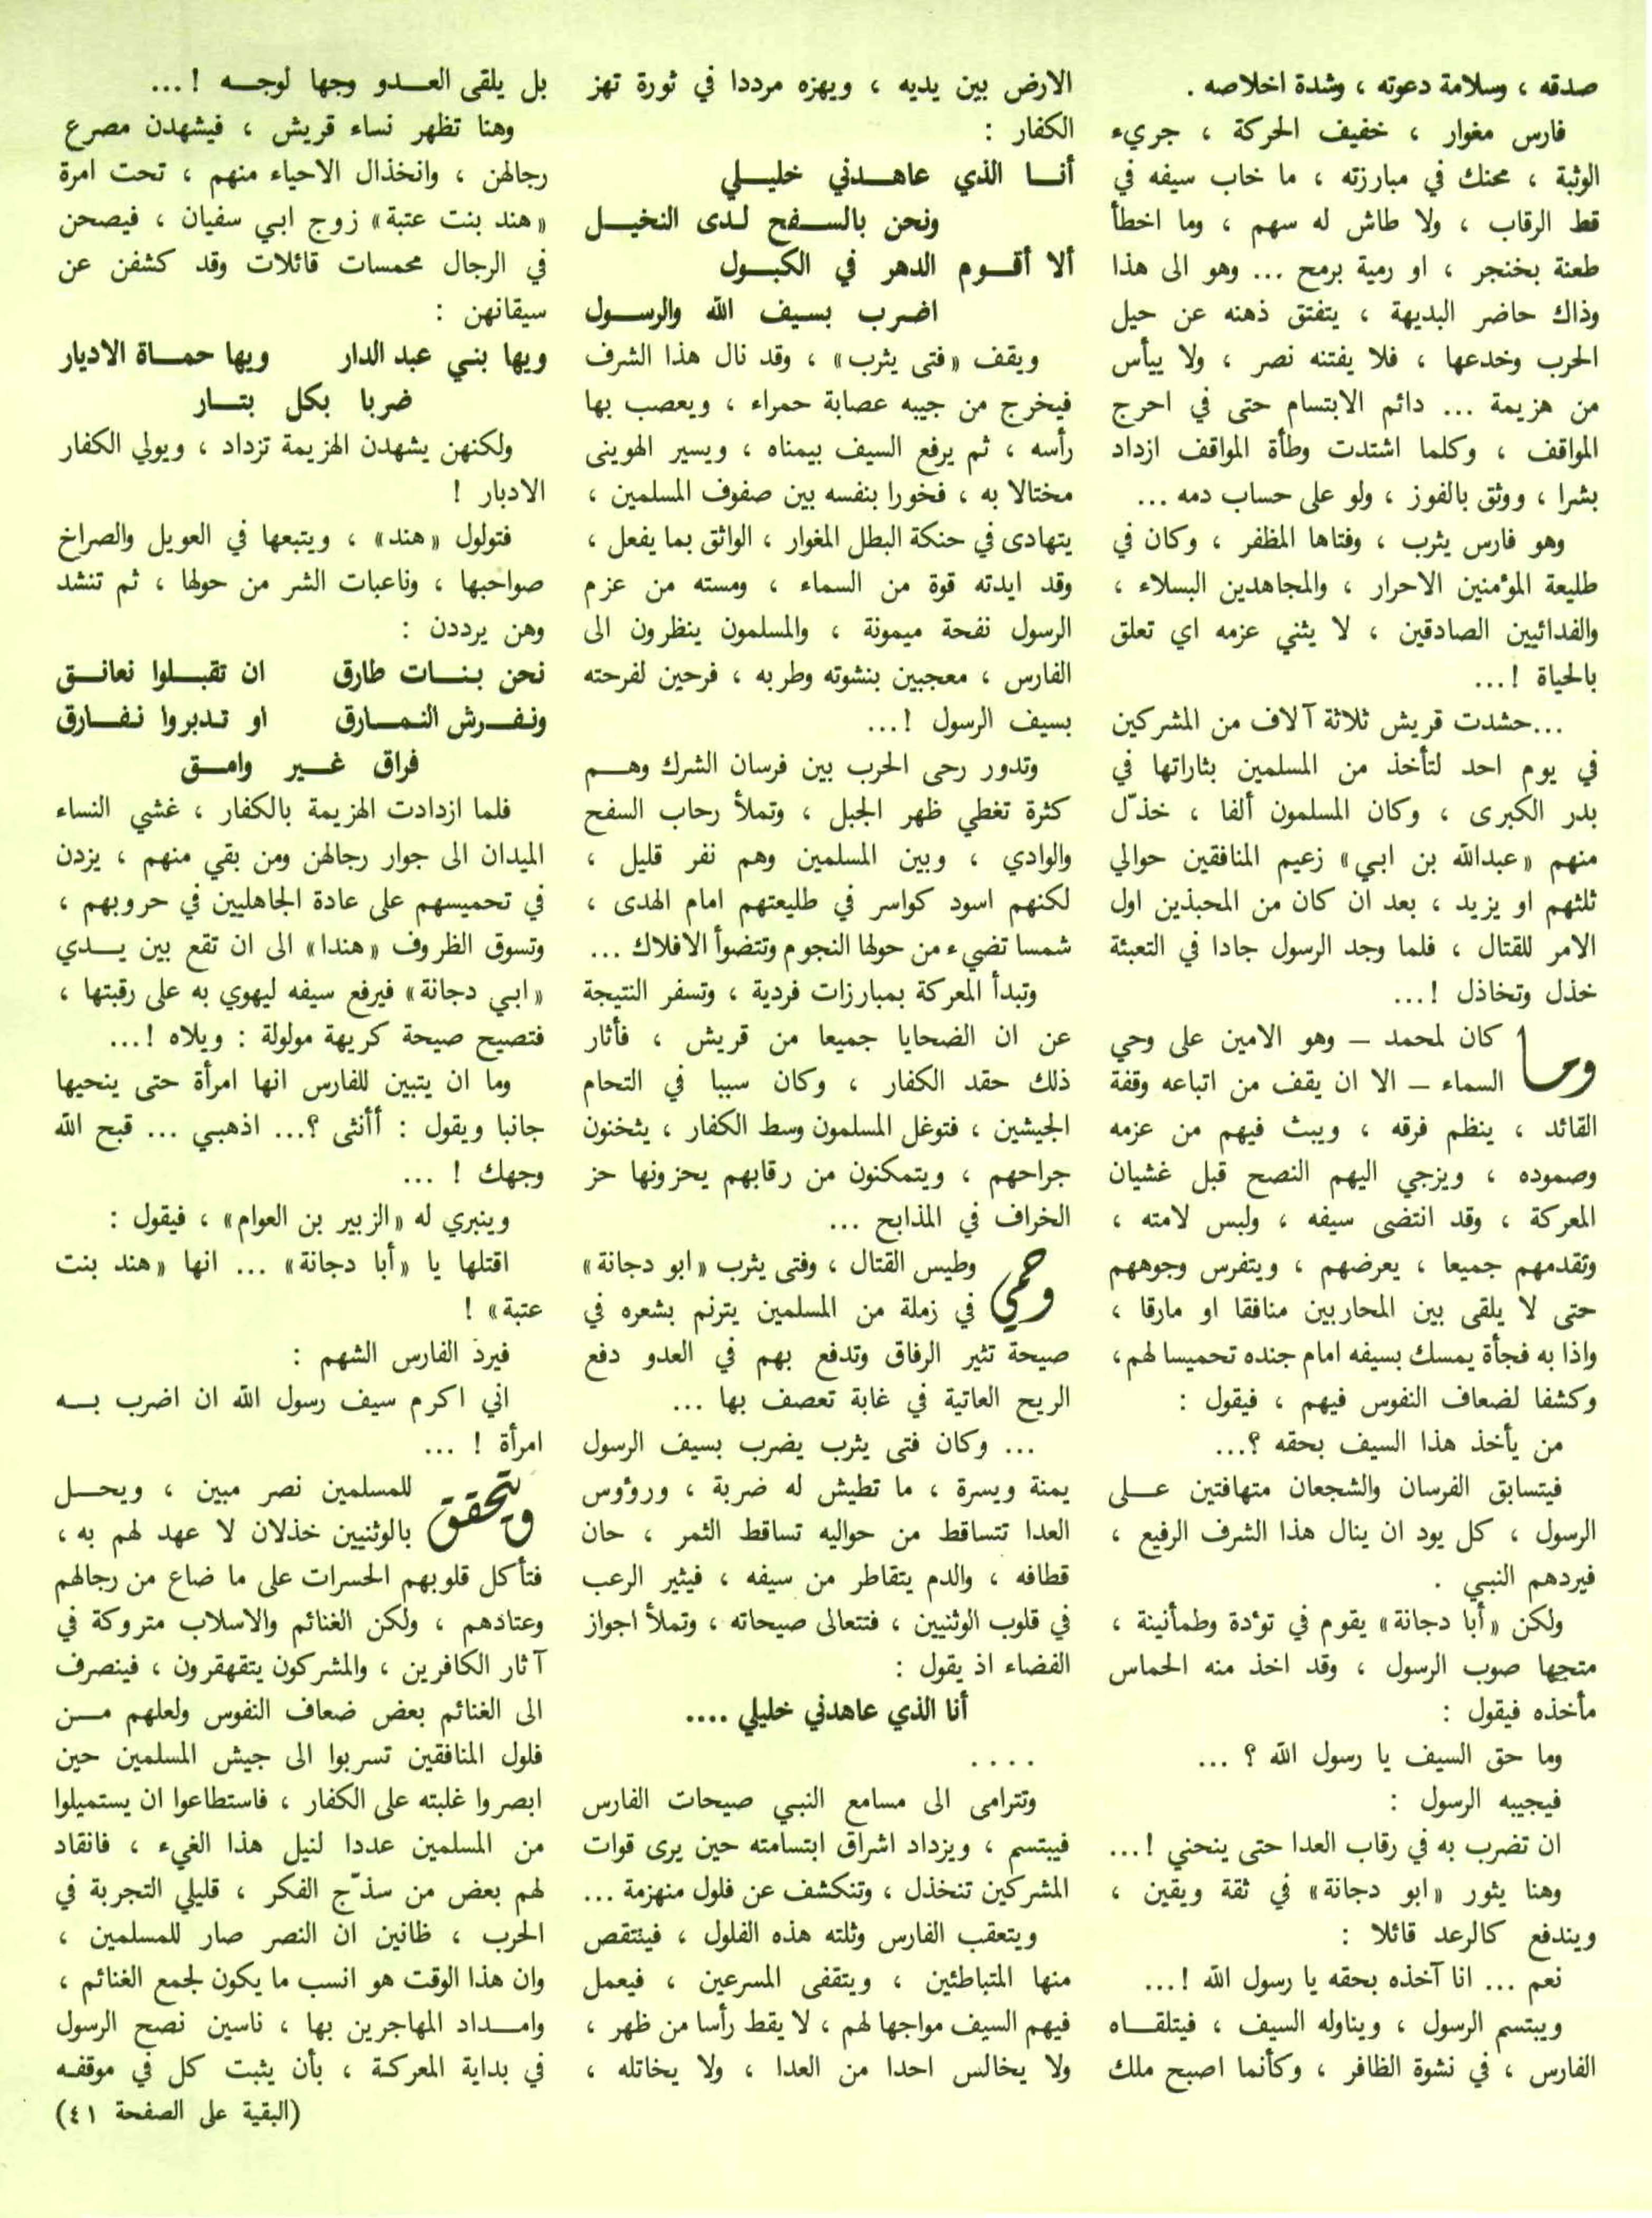 صدقه ، وسلامة دعوته ، وشدة اخلاصه .
فارس مغوار ، خفيف الحركة ، جريء
الوثبة ، محنك في مبارزته ، ما خاب سيفه في
قط الرقاب ، ولا طاش له سهم ، وما اخطأ
طعنة بخنجر ، او رمية برمح ... وهو الى هذا
وذاك حاضر البديهة ، يتفتق ذهنه عن حيل
الحرب وخدعها ، فلا يفتنه نصر ، ولا ييأس
من هزيمة ... دائم الابتسام حتى في احرج
المواقف ، وكلما اشتدت وطأة المواقف ازداد
بشرا ، ووثق بالفوز ، ولو على حساب دمه ...
وهو فارس يثرب ، وفتاها المظفر ، وكان في
طليعة المؤمنين الاحرار ، والمجاهدين البسلاء ،
والفدائيين الصادقين ، لا يثني عزمه اي تعلق
بالحياة !...
...حشدت قريش ثلاثة آلاف من المشركين
في يوم احد لتأخذ من المسلمين بثاراتها في
بدر الكبرى ، وكان المسلمون ألفا ، خذّل
منهم «عبدالله بن ابي» زعيم المنافقين حوالي
ثلثهم او يزيد ، بعد ان كان من المحبذين اول
الامر للقتال ، فلما وجد الرسول جادا في التعبئة
خذل وتخاذل !...
وما كان لمحمد – وهو الامين على وحي
السماء – الا ان يقف من اتباعه وقفة
القائد ، ينظم فرقه ، ويبث فيهم من عزمه
وصموده ، ويزجي اليهم النصح قبل غشيان
المعركة ، وقد انتضى سيفه ، ولبس لامته ،
وتقدمهم جميعا ، يعرضهم ، ويتفرس وجوههم
حتى لا يلقى بين المحاربين منافقا او مارقا ،
واذا به فجأة يمسك بسيفه امام جنده تحميسا لهم،
وكشفا لضعاف النفوس فيهم ، فيقول :
من يأخذ هذا السيف بحقه ؟...
فيتسابق الفرسان والشجعان متهافتين علـى
الرسول ، كل يود ان ينال هذا الشرف الرفيع ،
فيردهم النبي .
ولكن «أبا دجانة» يقوم في تؤدة وطمأنينة ،
متجها صوب الرسول ، وقد اخذ منه الحماس
مأخذه فيقول :
وما حق السيف يا رسول الله ؟ ...
فيجيبه الرسول :
ان تضرب به في رقاب العدا حتى ينحني !...
وهنا يثور «ابو دجانة» في ثقة ويقين ،
ويندفع كالرعد قائلا :
نعم ... انا آخذه بحقه يا رسول الله !...
ويبتسم الرسول ، ويناوله السيف ، فيتلقـاه
الفارس ، في نشوة الظافر ، وكأنما اصبح ملك
الارض بين يديه ، ويهزه مرددا في ثورة تهز
الكفار :
أنـا الذي عاهـدني خليـلي
ونحن بالسـفح لـدى النخيـل
ألا أقـوم الدهر في الكبـول
اضرب بسيف الله والرسـول
ويقف «فتى يثرب» ، وقد نال هذا الشرف
فيخرج من جيبه عصابة حمراء ، ويعصب بها
رأسه ، ثم يرفع السيف بيمناه ، ويسير الهوينى
مختالا به ، فخورا بنفسه بين صفوف المسلمين ،
يتهادى في حنكة البطل المغوار ، الواثق بما يفعل ،
وقد ايدته قوة من السماء ، ومسته من عزم
الرسول نفحة ميمونة ، والمسلمون ينظرون الى
الفارس ، معجبين بنشوته وطربه ، فرحين لفرحته
بسيف الرسول !...
وتدور رحى الحرب بين فرسان الشرك وهـم
كثرة تغطي ظهر الجبل ، وتملأ رحاب السفح
والوادي ، وبين المسلمين وهم نفر قليل ،
لكنهم اسود كواسر في طليعتهم امام الهدى ،
شمسا تضيء من حولها النجوم وتتضوأ الافلاك ...
وتبدأ المعركة بمبارزات فردية ، وتسفر النتيجة
عن ان الضحايا جميعا من قريش ، فأثار
ذلك حقد الكفار ، وكان سببا في التحام
الجيشين ، فتوغل المسلمون وسط الكفار ، يثخنون
جراحهم ، ويتمكنون من رقابهم يحزونها حز
الخراف في المذابح ...
وحمي وطيس القتال ، وفتى يثرب «ابو دجانة»
في زملة من المسلمين يترنم بشعره في
صيحة تثير الرفاق وتدفع بهم في العدو دفع
الريح العاتية في غابة تعصف بها ...
... وكان فتى يثرب يضرب بسيف الرسول
يمنة ويسرة ، ما تطيش له ضربة ، ورؤوس
العدا تتساقط من حواليه تساقط الثمر ، حان
قطافه ، والدم يتقاطر من سيفه ، فيثير الرعب
في قلوب الوثنيين ، فتتعالى صيحاته ، وتملأ اجواز
الفضاء اذ يقول :
أنا الذي عاهدني خليلي ....
....
وتترامى الى مسامع النبي صيحات الفارس
فيبتسم ، ويزداد اشراق ابتسامته حين يرى قوات
المشركين تنخذل ، وتنكشف عن فلول منهزمة ...
ويتعقب الفارس وثلته هذه الفلول ، فينتقص
منها المتباطئين ، ويتقفى المسرعين ، فيعمل
فيهم السيف مواجها لهم ، لا يقط رأسا من ظهر ،
ولا يخالس احدا من العدا ، ولا يخاتله ،
بل يلقى العـدو وجها لوجـه !...
وهنا تظهر نساء قريش ، فيشهدن مصرع
رجالهن ، وانخذال الاحياء منهم ، تحت امرة
«هند بنت عتبة» زوج ابي سفيان ، فيصحن
في الرجال محمسات قائلات وقد كشفن عن
سيقانهن :
ويها بني عبد الدار ويها حمـاة الاديار
ضربا بكل بتـار
ولكنهن يشهدن الهزيمة تزداد ، ويولي الكفار
الادبار !
فتولول «هند» ، ويتبعها في العويل والصراخ
صواحبها ، وناعبات الشر من حولها ، ثم تنشد
وهن يرددن :
نحن بنـات طارق ان تقبـلوا نعانـق
ونفـرش النمـارق او تدبروا نفـارق
فراق غـير وامـق
فلما ازدادت الهزيمة بالكفار ، غشي النساء
الميدان الى جوار رجالهن ومن بقي منهم ، يزدن
في تحميسهم على عادة الجاهليين في حروبهم ،
وتسوق الظروف «هندا» الى ان تقع بين يـدي
«ابي دجانة» فيرفع سيفه ليهوي به على رقبتها ،
فتصيح صيحة كريهة مولولة : ويلاه !...
وما ان يتبين للفارس انها امرأة حتى ينحيها
جانبا ويقول : أأنثى ؟... اذهبي ... قبح الله
وجهك ! ...
وينبري له «الزبير بن العوام» ، فيقول :
اقتلها يا «أبا دجانة» ... انها «هند بنت
عتبة» !
فيرد الفارس الشهم :
اني اكرم سيف رسول الله ان اضرب بـه
امرأة ! ...
ويتحقق للمسلمين نصر مبين ، ويحـل
بالوثنيين خذلان لا عهد لهم به ،
فتأكل قلوبهم الحسرات على ما ضاع من رجالهم
وعتادهم ، ولكن الغنائم والاسلاب متروكة في
آثار الكافرين ، والمشركون يتقهقرون ، فينصرف
الى الغنائم بعض ضعاف النفوس ولعلهم مـن
فلول المنافقين تسربوا الى جيش المسلمين حين
ابصروا غلبته على الكفار ، فاستطاعوا ان يستميلوا
من المسلمين عددا لنيل هذا الغيء ، فانقاد
لهم بعض من سذّج الفكر ، قليلي التجربة في
الحرب ، ظانين ان النصر صار للمسلمين ،
وان هذا الوقت هو انسب ما يكون لجمع الغنائم ،
وامـداد المهاجرين بها ، ناسين نصح الرسول
في بداية المعركة ، بأن يثبت كل في موقفه
(البقية على الصفحة ٤١)